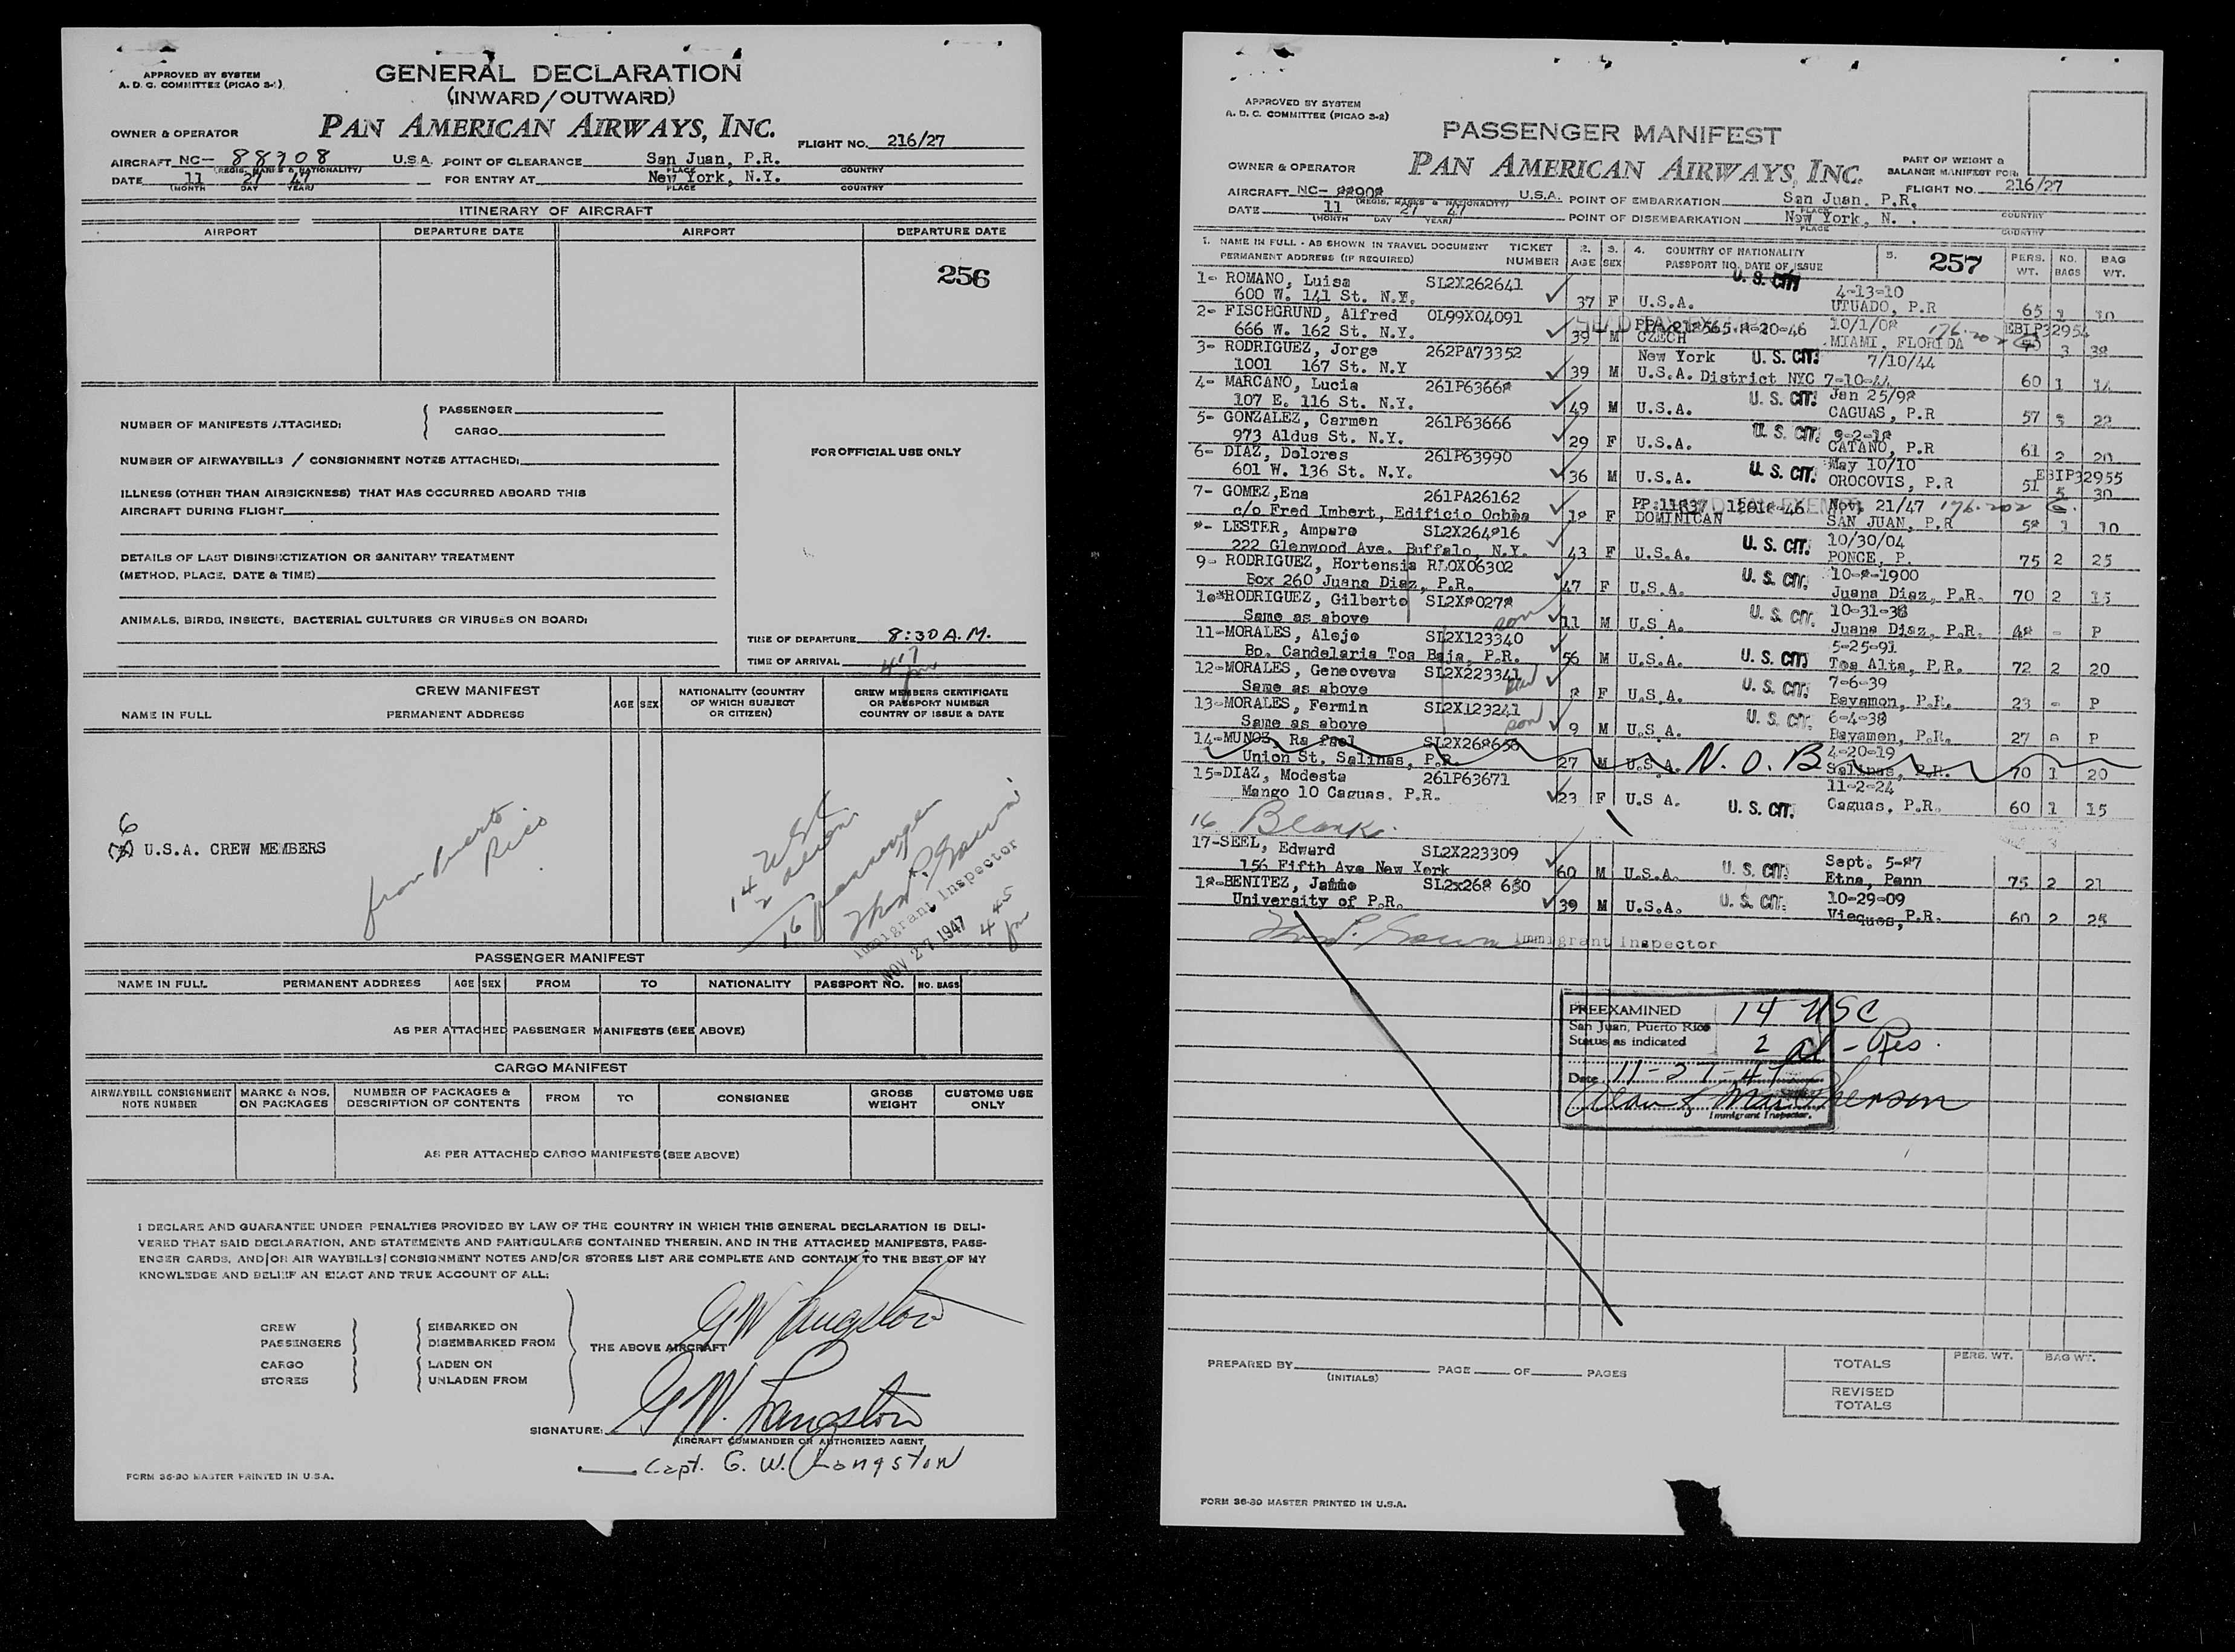 APPROVED BY SYSTEM
A. D. C. COMMITTEE (PICAO S-1)
GENERAL DECLARATION
(INWARD/OUTWARD)
OWNER & OPERATOR
PAN AMERICAN AIRWAYS, INC.
FLIGHT NO. 216/27
AIRCRAFT NC- 88908 U.S.A. POINT OF CLEARANCE San Juan, P.R.
(REGIS. MARKS & NATIONALITY) PLACE COUNTRY
DATE 11 27 47 FOR ENTRY AT New York, N.Y.
(MONTH DAY YEAR) PLACE COUNTRY
ITINERARY OF AIRCRAFT
AIRPORT DEPARTURE DATE AIRPORT DEPARTURE DATE
256
NUMBER OF MANIFESTS ATTACHED: { PASSENGER
CARGO
NUMBER OF AIRWAYBILLS / CONSIGNMENT NOTES ATTACHED:
FOR OFFICIAL USE ONLY
ILLNESS (OTHER THAN AIRSICKNESS) THAT HAS OCCURRED ABOARD THIS
AIRCRAFT DURING FLIGHT
DETAILS OF LAST DISINSECTIZATION OR SANITARY TREATMENT
(METHOD, PLACE, DATE & TIME)
ANIMALS, BIRDS, INSECTS, BACTERIAL CULTURES OR VIRUSES ON BOARD:
TIME OF DEPARTURE 8:30 A.M.
TIME OF ARRIVAL 4 17 pm
CREW MANIFEST
NAME IN FULL PERMANENT ADDRESS AGE SEX NATIONALITY (COUNTRY OF WHICH SUBJECT OR CITIZEN) CREW MEMBERS CERTIFICATE OR PASSPORT NUMBER COUNTRY OF ISSUE & DATE
6
U.S.A. CREW MEMBERS
from Puerto
Rico
14 USC
2 aliens
16 passenger
Immigrant Inspector
NOV 27 1947
4 45
pm
PASSENGER MANIFEST
NAME IN FULL PERMANENT ADDRESS AGE SEX FROM TO NATIONALITY PASSPORT NO. NO. BAGS
AS PER ATTACHED PASSENGER MANIFESTS (SEE ABOVE)
CARGO MANIFEST
AIRWAYBILL CONSIGNMENT NOTE NUMBER MARKS & NOS. ON PACKAGES NUMBER OF PACKAGES & DESCRIPTION OF CONTENTS FROM TO CONSIGNEE GROSS WEIGHT CUSTOMS USE ONLY
AS PER ATTACHED CARGO MANIFESTS (SEE ABOVE)
I DECLARE AND GUARANTEE UNDER PENALTIES PROVIDED BY LAW OF THE COUNTRY IN WHICH THIS GENERAL DECLARATION IS DELI-
VERED THAT SAID DECLARATION, AND STATEMENTS AND PARTICULARS CONTAINED THEREIN, AND IN THE ATTACHED MANIFESTS, PASS-
ENGER CARDS, AND/OR AIR WAYBILLS/CONSIGNMENT NOTES AND/OR STORES LIST ARE COMPLETE AND CONTAIN TO THE BEST OF MY
KNOWLEDGE AND BELIEF AN EXACT AND TRUE ACCOUNT OF ALL:
CREW EMBARKED ON
PASSENGERS DISEMBARKED FROM
THE ABOVE AIRCRAFT
CARGO LADEN ON
STORES UNLADEN FROM
G W Langston
SIGNATURE: G W. Langston
AIRCRAFT COMMANDER OR AUTHORIZED AGENT
Capt. G. W. Langston
FORM 36-30 MASTER PRINTED IN U.S.A.
APPROVED BY SYSTEM
A. D. C. COMMITTEE (PICAO S-2)
PASSENGER MANIFEST
OWNER & OPERATOR
PAN AMERICAN AIRWAYS, INC.
PART OF WEIGHT &
BALANCE MANIFEST FOR:
FLIGHT NO. 216/27
AIRCRAFT NC- 88908 U.S.A. POINT OF EMBARKATION San Juan, P.R.
(REGIS. MARKS & NATIONALITY) PLACE COUNTRY
DATE 11 27 47 POINT OF DISEMBARKATION New York, N. .
(MONTH DAY YEAR) PLACE COUNTRY
1. NAME IN FULL - AS SHOWN IN TRAVEL DOCUMENT TICKET 2. 3. 4. COUNTRY OF NATIONALITY 5. 257 PERS. NO. BAG
PERMANENT ADDRESS (IF REQUIRED) NUMBER AGE SEX PASSPORT NO. DATE OF ISSUE WT. BAGS WT.
1- ROMANO, Luisa SL2X262641 U. S. CIT. 4-13-10
600 W. 141 St. N.Y. 37 F U.S.A. UTUADO, P.R 65 1 10
2- FISCHGRUND, Alfred OL99X04091 10/1/08 176.202 EBIP32954
666 W. 162 St. N.Y. 39 M CZECH MIAMI, FLORIDA 3 38
3- RODRIGUEZ, Jorge 262PA73352 New York U. S. CIT. 7/10/44
1001 167 St. N.Y 39 M U.S.A. District NYC 7-10-44 60 1 14
4- MARCANO, Lucia 261P63668 U. S. CIT. Jan 25/98
107 E. 116 St. N.Y. 49 M U.S.A. CAGUAS, P.R 57 22
5- GONZALEZ, Carmen 261P63666 U. S. CIT. 9-2-18
973 Aldus St. N.Y. 29 F U.S.A. CATAÑO, P.R 61 2 20
6- DIAZ, Dolores 261P63990 U. S. CIT. May 10/10
601 W. 136 St. N.Y. 36 M U.S.A. OROCOVIS, P.R 51 5 30
EBIP32955
7- GOMEZ, Ena 261PA26162 Nov. 21/47 176.202
c/o Fred Imbert, Edificio Ochoa 18 F DOMINICAN SAN JUAN, P.R 58 1 10
8- LESTER, Amparo SL2X264816 U. S. CIT. 10/30/04
222 Glenwood Ave. Buffalo, N.Y. 43 F U.S.A. PONCE, P. 75 2 25
9- RODRIGUEZ, Hortensia RLOX06302 U. S. CIT. 10-8-1900
Box 260 Juana Diaz, P.R. 47 F U.S.A. Juana Diaz, P.R. 70 2 15
10-RODRIGUEZ, Gilberto SL2X80278 U. S. CIT. 10-31-36
Same as above son 11 M U.S.A. Juana Diaz, P.R. 48 - P
11-MORALES, Alejo SL2X123340 5-25-91
Bo. Candelaria Toa Baja, P.R. 56 M U.S.A. U. S. CIT. Toa Alta, P.R. 72 2 20
12-MORALES, Geneoveva SL2X223341 U. S. CIT. 7-6-39
Same as above 8 F U.S.A. Bayamon, P.R. 23 - P
13-MORALES, Fermin SL2X123241 U. S. CIT. 6-4-38
Same as above son 9 M U.S.A. Bayamon, P.R. 27 P
14-MUNOZ, Rafael SL2X268656 N. O. B 4-20-19
Union St. Salinas, P.R. 27 M U.S.A. Salinas, P.R. 70 1 20
15-DIAZ, Modesta 261P63671 11-2-24
Mango 10 Caguas, P.R. 23 F U.S A. U. S. CIT. Caguas, P.R. 60 1 15
16 Blank.
17-SEEL, Edward SL2X223309 Sept. 5-87
156 Fifth Ave New York 60 M U.S.A. U. S. CIT. Etna, Penn 75 2 21
18-BENITEZ, Jaime SL2x268 660 10-29-09
University of P.R. 39 M U.S.A. U. S. CIT. Vieques, P.R. 60 2 25
Immigrant Inspector
PREEXAMINED 14 USC
San Juan, Puerto Rico
Status as indicated 2 Al - Res.
Date 11-27-47
Immigrant Inspector.
PREPARED BY PAGE OF PAGES
(INITIALS)
TOTALS PERS. WT. BAG WT.
REVISED
TOTALS
FORM 36-30 MASTER PRINTED IN U.S.A.